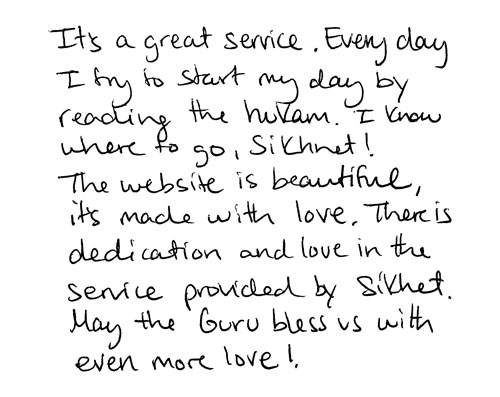 It's a great service. Every day
I try to start my day by
reading the hukam. I know
where to go, Sikhnet!
The website is beautiful,
it's made with love. There is
dedication and love in the
service provided by Sikhet.
May the Guru bless us with
even more love!